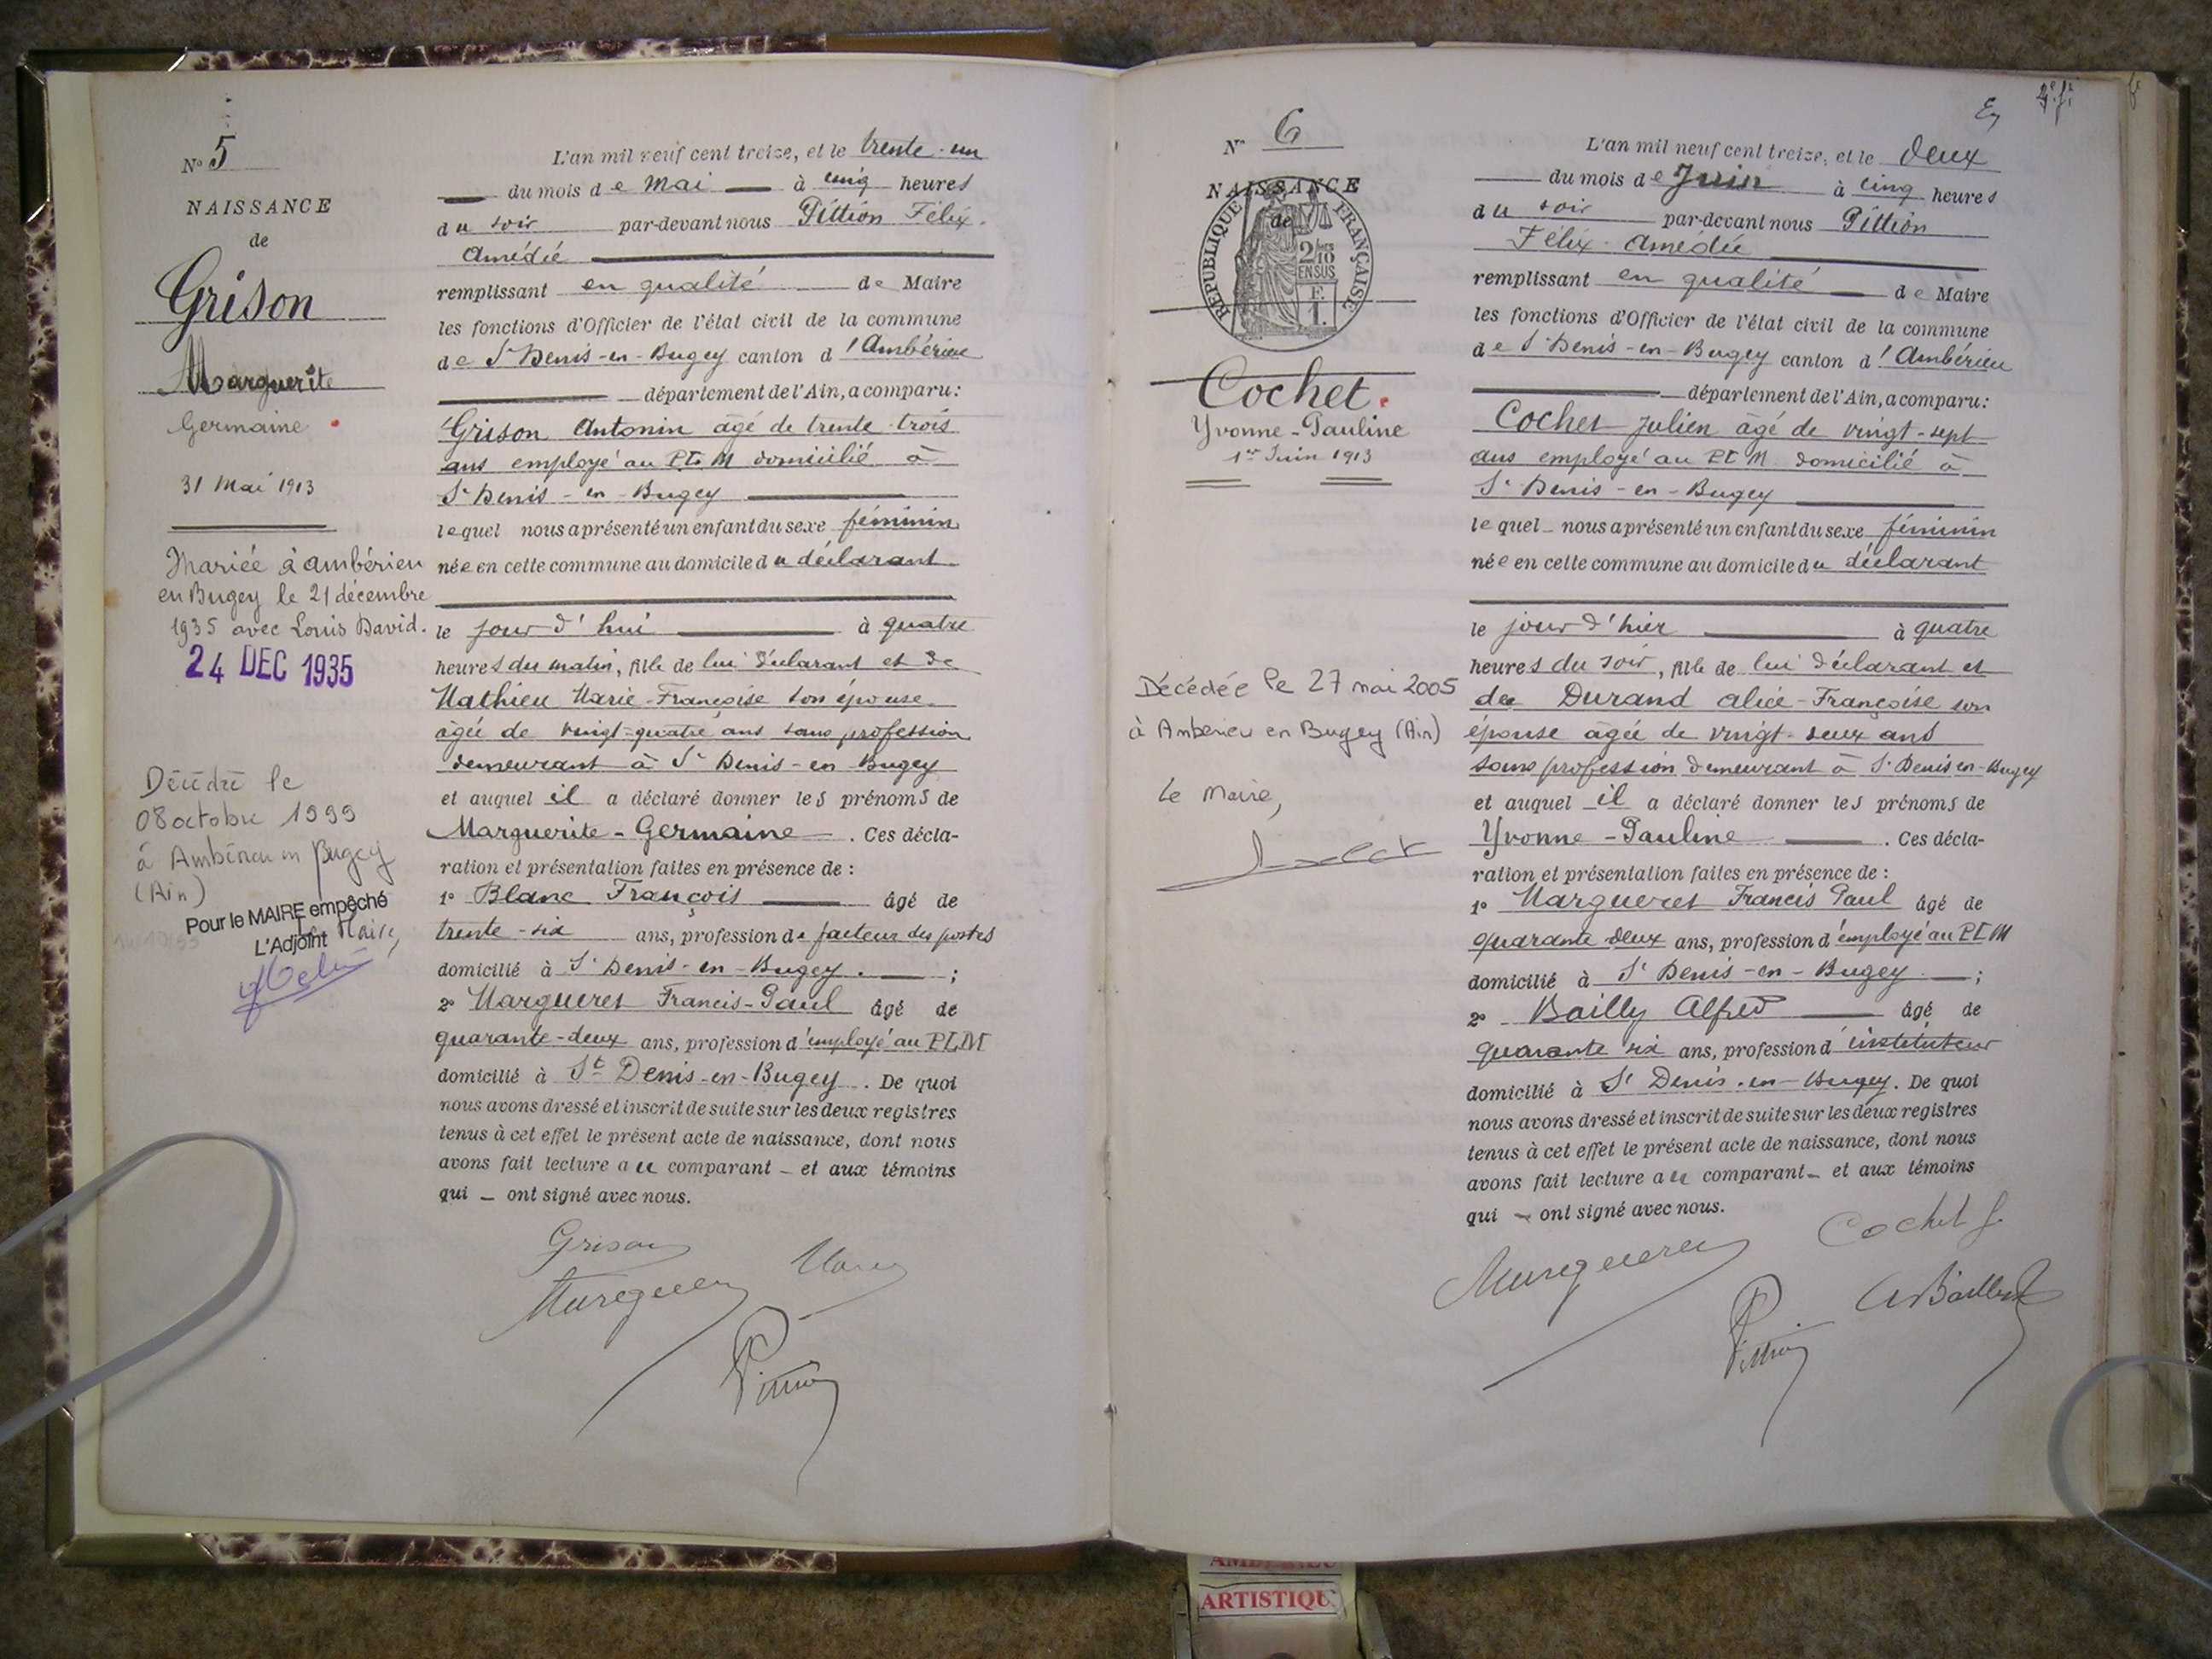 N° 5
NAISSANCE
de
Grison
Marguerite
Germaine
31 Mai 1913
Mariée à Ambérieu
en Bugey le 21 décembre
1935 avec Louis David.
24 DEC 1935
Décédée le
08 octobre 1999
à Ambérieu en Bugey
(Ain)
Pour le MAIRE empêché
Le Maire,
L'Adjoint
L'an mil neuf cent treize, et le trente-un
du mois de Mai à cinq heures
du soir par-devant nous Pittion Félix-
Amédée
remplissant en qualité de Maire
les fonctions d'Officier de l'état civil de la commune
de St Denis-en-Bugey canton d'Ambérieu
département de l'Ain, a comparu:
Grison Antonin âgé de trente-trois
ans employé au P.L.M domicilié à
St Denis-en-Bugey
lequel nous a présenté un enfant du sexe féminin
née en cette commune au domicile du déclarant
le jour d'hui à quatre
heures du matin, fille de lui déclarant et de
Mathieu Marie-Françoise son épouse
âgée de vingt-quatre ans sans profession
demeurant à St Denis-en-Bugey
et auquel il a déclaré donner les prénoms de
Marguerite-Germaine. Ces décla-
ration et présentation faites en présence de :
1° Blanc François âgé de
trente-six ans, profession de facteur des postes
domicilié à St Denis-en-Bugey. ;
2° Margueret Francis-Paul âgé de
quarante-deux ans, profession d'employé au PLM
domicilié à St Denis-en-Bugey. De quoi
nous avons dressé et inscrit de suite sur les deux registres
tenus à cet effet le présent acte de naissance, dont nous
avons fait lecture au comparant et aux témoins
qui ont signé avec nous.
Grison
Margueret
Pittion
N° 6
NAISSANCE
de
RÉPUBLIQUE FRANÇAISE
2/10
EN SUS
F.
1.
Cochet.
Yvonne-Pauline
1er Juin 1913
Décédée le 27 mai 2005
à Ambérieu en Bugey (Ain)
Le Maire,
L'an mil neuf cent treize, et le deux
du mois de Juin à cinq heures
du soir par-devant nous Pittion
Félix-Amédée
remplissant en qualité de Maire
les fonctions d'Officier de l'état civil de la commune
de St Denis-en-Bugey canton d'Ambérieu
département de l'Ain, a comparu:
Cochet Julien âgé de vingt-sept
ans employé au PLM domicilié à
St Denis-en-Bugey
lequel nous a présenté un enfant du sexe féminin
née en cette commune au domicile du déclarant
le jour d'hier à quatre
heures du soir, fille de lui déclarant et
de Durand Alice-Françoise son
épouse âgée de vingt-deux ans
sans profession demeurant à St Denis en-Bugey
et auquel il a déclaré donner les prénoms de
Yvonne-Pauline. Ces décla-
ration et présentation faites en présence de :
1° Margueret Francis Paul âgé de
quarante deux ans, profession d'employé au PLM
domicilié à St Denis-en-Bugey ;
2° Bailly Alfred âgé de
quarante six ans, profession d'instituteur
domicilié à St Denis-en-Bugey. De quoi
nous avons dressé et inscrit de suite sur les deux registres
tenus à cet effet le présent acte de naissance, dont nous
avons fait lecture au comparant et aux témoins
qui ont signé avec nous.
Cochet J
Margueret
A Bailly
Pittion
ARTISTIQU